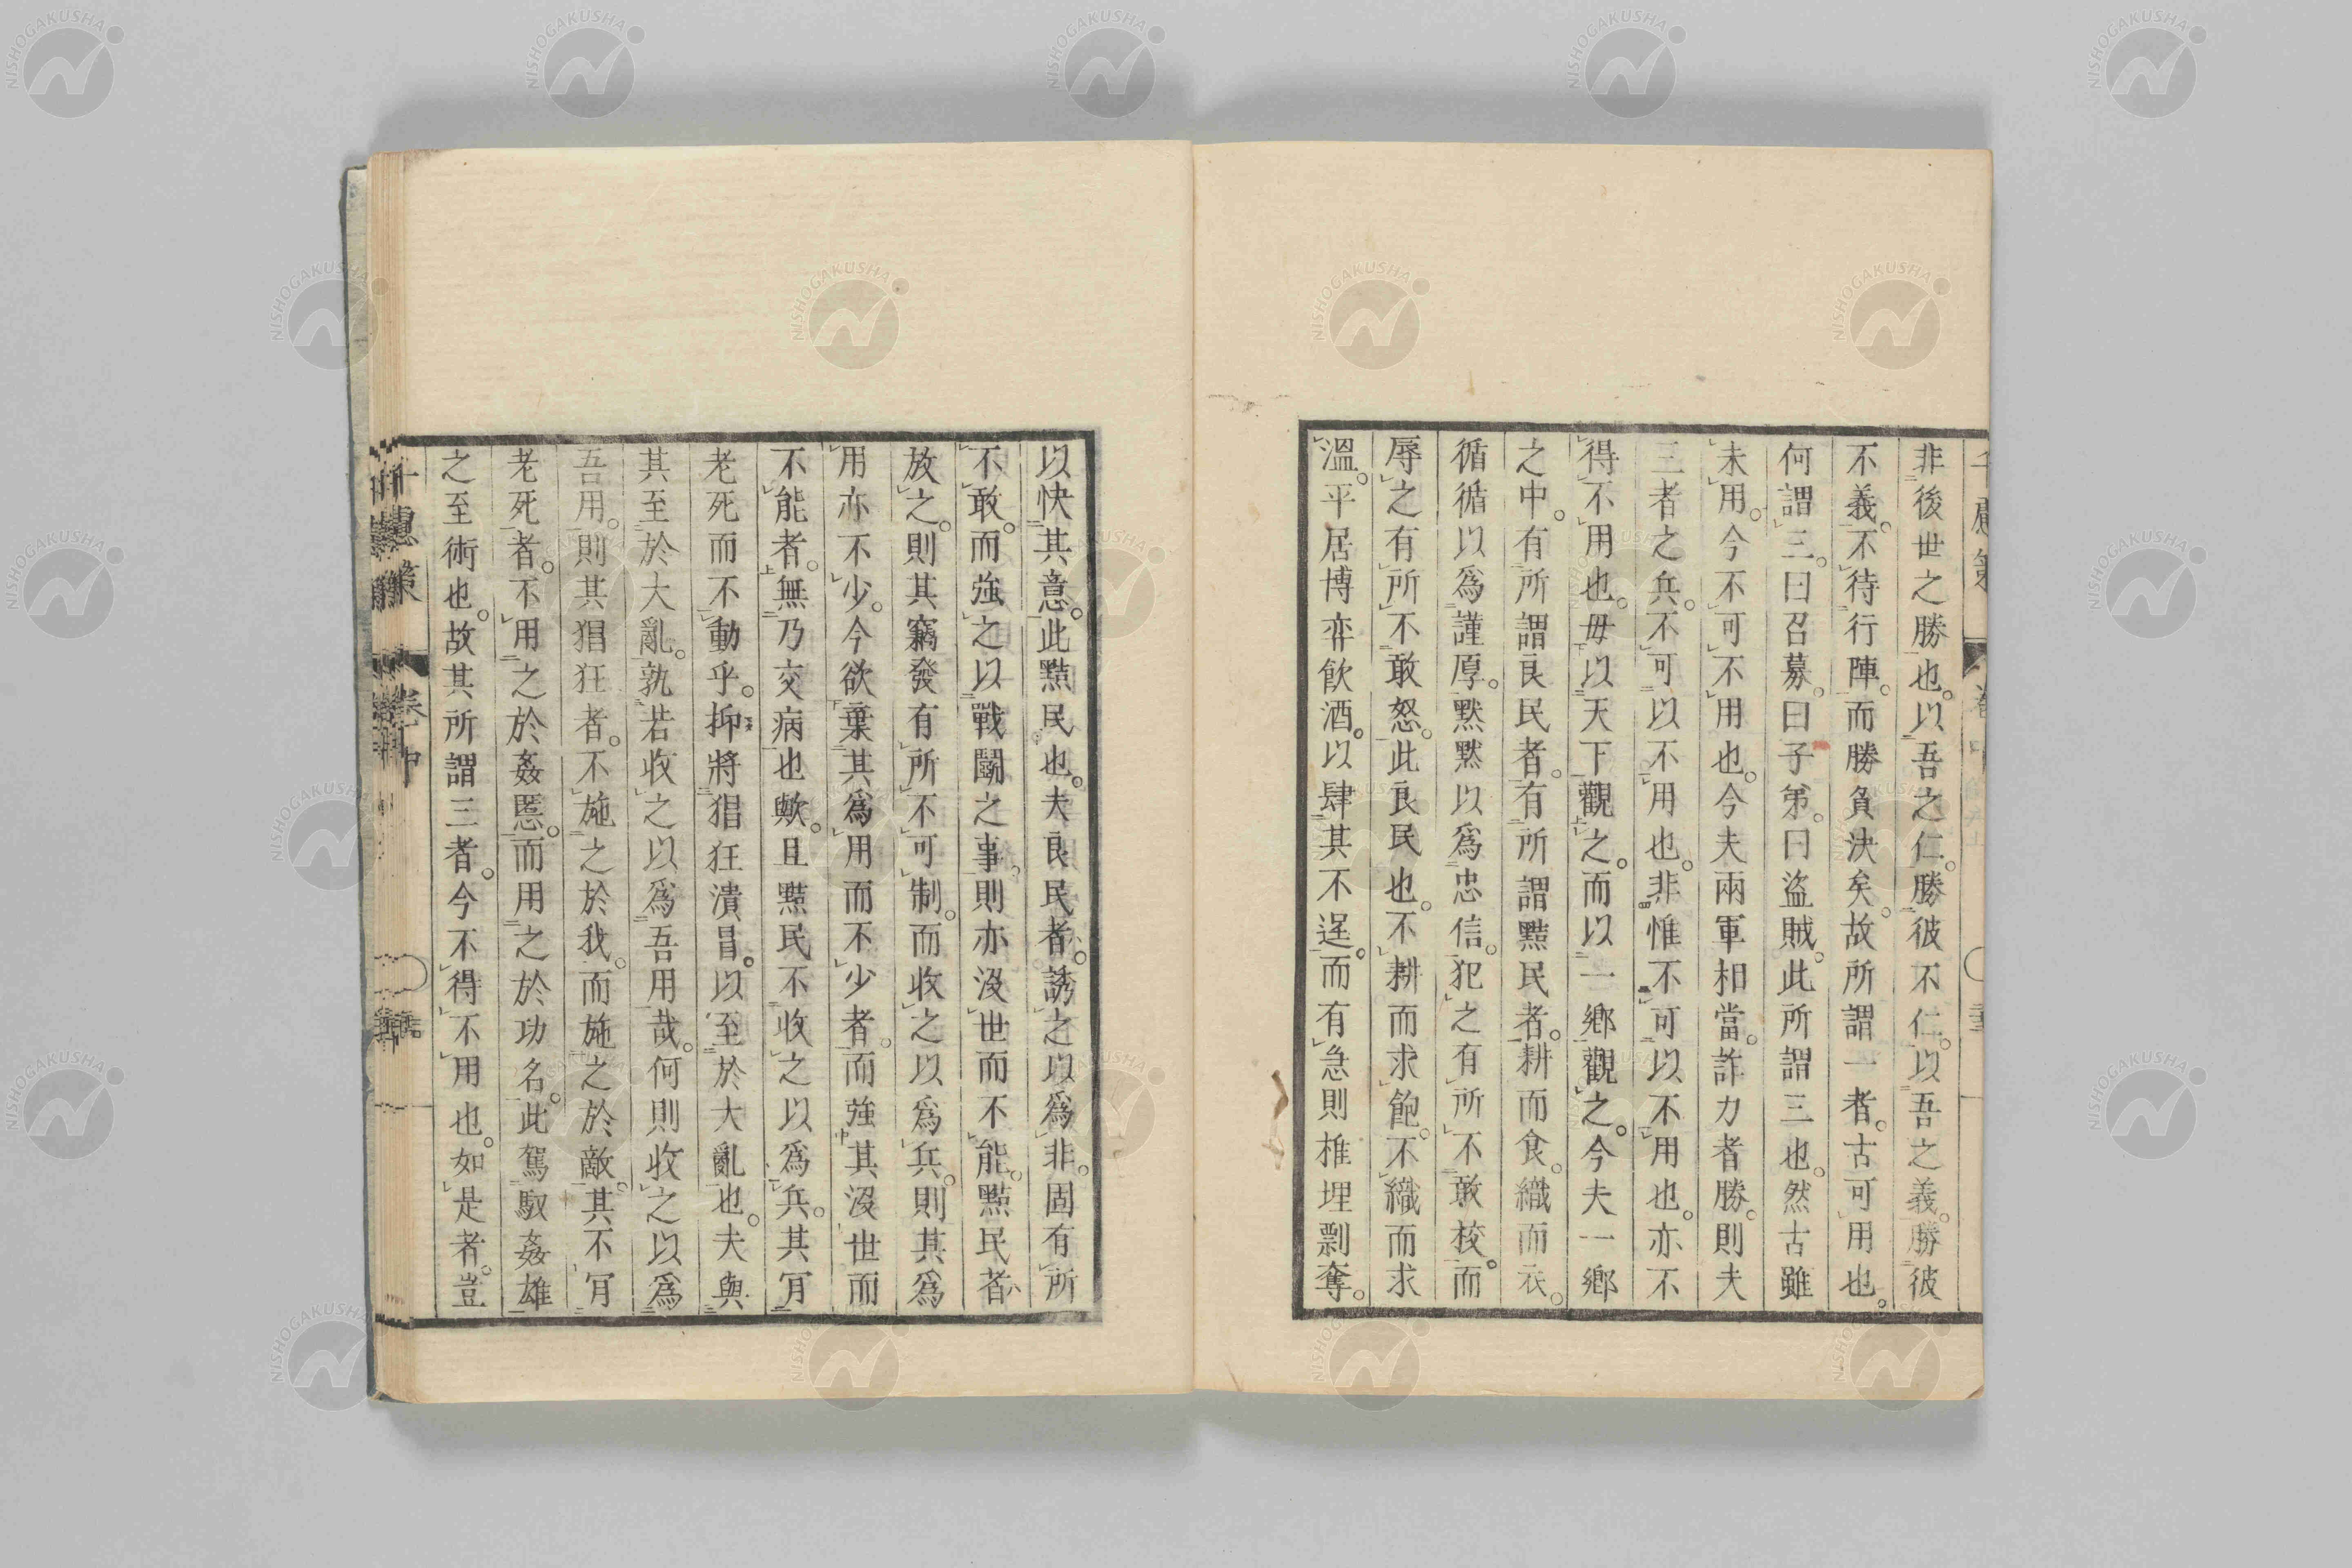 非後世之勝也。以吾之仁。勝彼不仁。以吾之義。勝彼
不義。不待行陣。而勝負決矣。故所謂一者。古可用也。
何謂三。曰召募。曰子弟。曰盜賊。此所謂三也。然古雖
未用。今不可不用也。今夫兩軍相當。詐力者勝。則夫
三者之兵。不可以不用也。非惟不可以不用也。亦不
得不用也。毋以天下觀之。而以一鄉觀之。今夫一鄉
之中。有所謂良民者。有所謂黠民者。耕而食。織而衣。
循循以爲謹厚。默默以爲忠信。犯之有所不敢校。而
辱之有所不敢怒。此良民也。不耕而求飽。不織而求
溫。平居博弈飮酒。以肆其不逞。而有急則椎埋剽奪。
以快其意。此黠民也。夫良民者。誘之以爲非。固有所
不敢。而強之以戰鬭之事。則亦沒世而不能。黠民者
放之。則其竊發有所不可制。而收之以爲兵。則其爲
用亦不少。今欲棄其爲用而不少者。而強其沒世而
不能者。無乃交病也歟。且黠民不收之以爲兵。其肎
老死而不動乎。抑將猖狂潰冒。以至於大亂也。夫與
其至於大亂。孰若收之以爲吾用哉。何則收之以爲
吾用。則其猖狂者。不施之於我。而施之於敵。其不肎
老死者。不用之於姦慝。而用之於功名。此駕馭姦雄
之至術也。故其所謂三者。今不得不用也。如是者。豈
千慮策 卷中
NISHOGAKUSHA